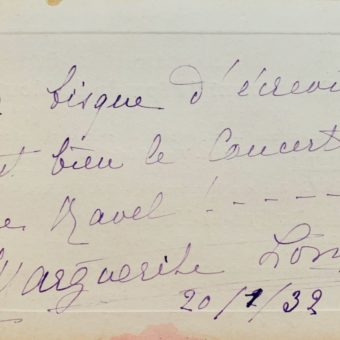 bisque d'écrevi
bien le Concert
Ravel ! - - - -
Marguerite Long
20/1/32